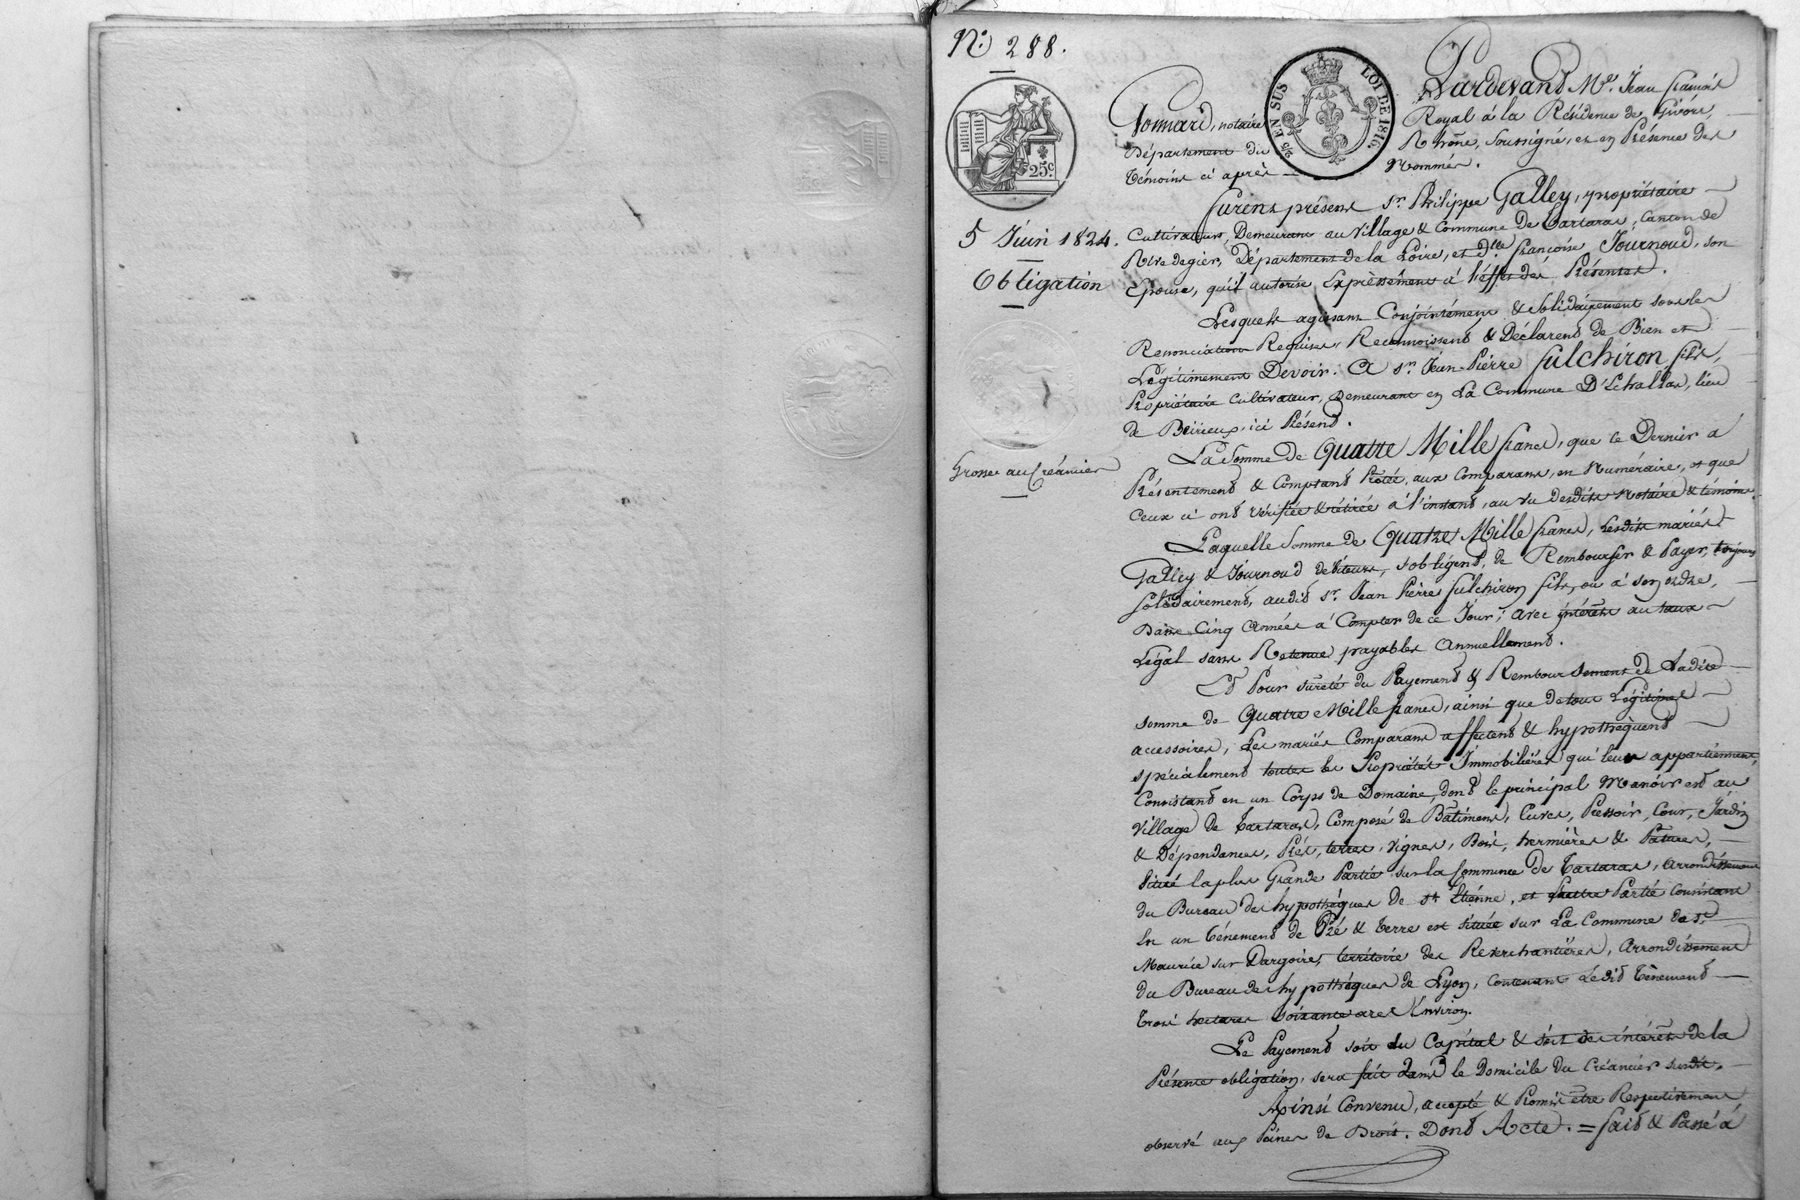 N.° 288.
25 EN SUS
LOI DE 1816.
25c
5 Juin 1824.
Obligation
Grosse au Créancier
Pardevant Me. Jean francois
Gonnard, notaire Royal à la Résidence de Givors,
Département du Rhône, Soussigné, et en Présence des
témoins ci après Nommés.
furent présent sr. Philippe Galley, propriétaire
Cultivateur, Demeurant au Village & Commune De Tartaras, Canton de
Rive degier, Département de la Loire, et dlle. françoise Journoud, son
Epouse, qu'il autorise Expressément à l'effet des Présentes.
Lesquels agissant Conjointément & Solidairement sous les
Renonciations Requises, Reconnoissent & Déclarent de Bien et
Légitimement Devoir. A sr. Jean-Pierre fulchiron fils,
Propriétaire Cultivateur, Demeurant en La Commune D'Echallas, lieu
de ici Présent.
La Somme de Quatre Mille francs, que ce Dernier a
Présentement & Comptant Prêtée, aux Comparans, en Numéraire, et que
Ceux ci ont vérifiée & retirée à l'instant, au vu desdits Notaire & témoins.
Laquelle Somme de Quatre Mille francs, lesdits mariés
Galley & Journoud débiteurs, s'obligent, de Rembourser & Payer, toujours
solidairement, audit sr. Jean Pierre fulchiron fils, ou à son ordre,
Dans Cinq Années à Compter de ce Jour; avec intérêts au taux
Légal sans Retenue, payables Annuellement.
Et Pour sûreté du Payement & Remboursement de Ladite
somme de Quatre Mille francs, ainsi que de tous Légitimes
accessoires, Les mariés Comparans affectent & hypothèquent
spécialement toutes les Propriétés Immobilières qui leur appartiennent,
Consistant en un Corps de Domaine, dont le principal Manoir est au
Village de Tartaras, Composé de Bâtimens, Cuves, Pressoir, Cour, Jardin
& Dépendances, Prés, terres, vignes, Bois, hermières & Pâtures,
Situé la plus Grande Partie sur la Commune de Tartaras, Arrondissement
du Bureau des hypothèques de St Etienne, et l'autre Partie Consistant
En un Ténement de Pré & Terre est située sur La Commune de St
Maurice sur Dargoire, territoire des Arrondissement
du Bureau des hypothèques de Lyon, Contenant Ledit Ténement
trois hectares soixante ares Environ.
Le Payement soit du Capital & soit des intérêts de la
Présente obligation, sera fait dans le Domicile du Créancier susdit.
Ainsi Convenu, accepté & Promis être Respectivement
observé aux Peines de Droit. Dont Acte. = fait & Passé à